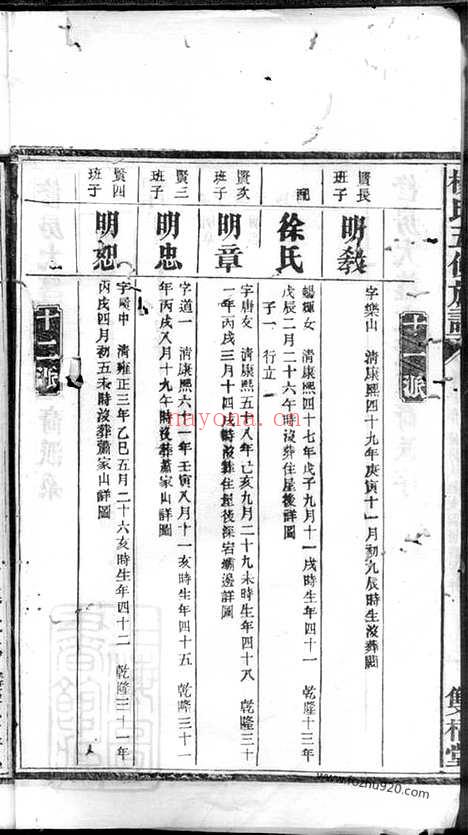 氏五修族譜
雙桂堂
十二派
賢長
班子
明教
字樂山 清康熙四十九年庚寅十一月初九辰時生沒葬闕
配
徐氏
暢輝女 清康熙四十七年戊子九月十一戌時生四十一 乾隆十三年
戊辰二月二十六午時沒葬住屋後詳圖
子一 行立
賢次
班子
明章
字唐友 清康熙五十八年己亥九月二十九未時生年四十八 乾隆三十
一年丙戌三月十四時沒葬住屋後深宕壩邊詳圖
賢三
班子
明忠
字道一 清康熙六十一年壬寅八月十一亥時生年四十五 乾隆三十一
年丙戌八月十九午時沒葬蕭家山詳圖
賢四
班子
明恕
字殿中 清雍正三年乙巳五月二十六亥時生年四十二 乾隆三十一年
丙戌四月初五未時沒葬蕭家山詳圖
十二派
nayona.cn
www.fozhu920.com